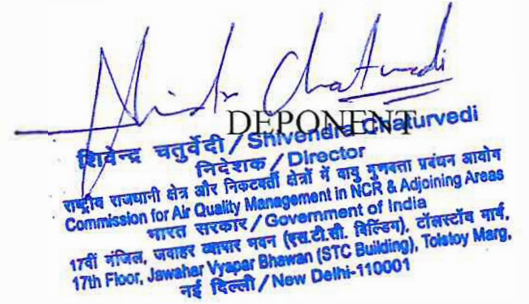 Shivendra Chaturvedi
DEPONENT
शिवेन्द्र चतुर्वेदी / Shivendra Chaturvedi
निदेशक / Director
राष्ट्रीय राजधानी क्षेत्र और निकटवर्ती क्षेत्रों में वायु गुणवत्ता प्रबंधन आयोग
Commission for Air Quality Management in NCR & Adjoining Areas
भारत सरकार / Government of India
17वीं मंजिल, जवाहर व्यापार भवन (एस.टी.सी. बिल्डिंग), टॉलस्टॉय मार्ग,
17th Floor, Jawahar Vyapar Bhawan (STC Building), Tolstoy Marg,
नई दिल्ली / New Delhi-110001